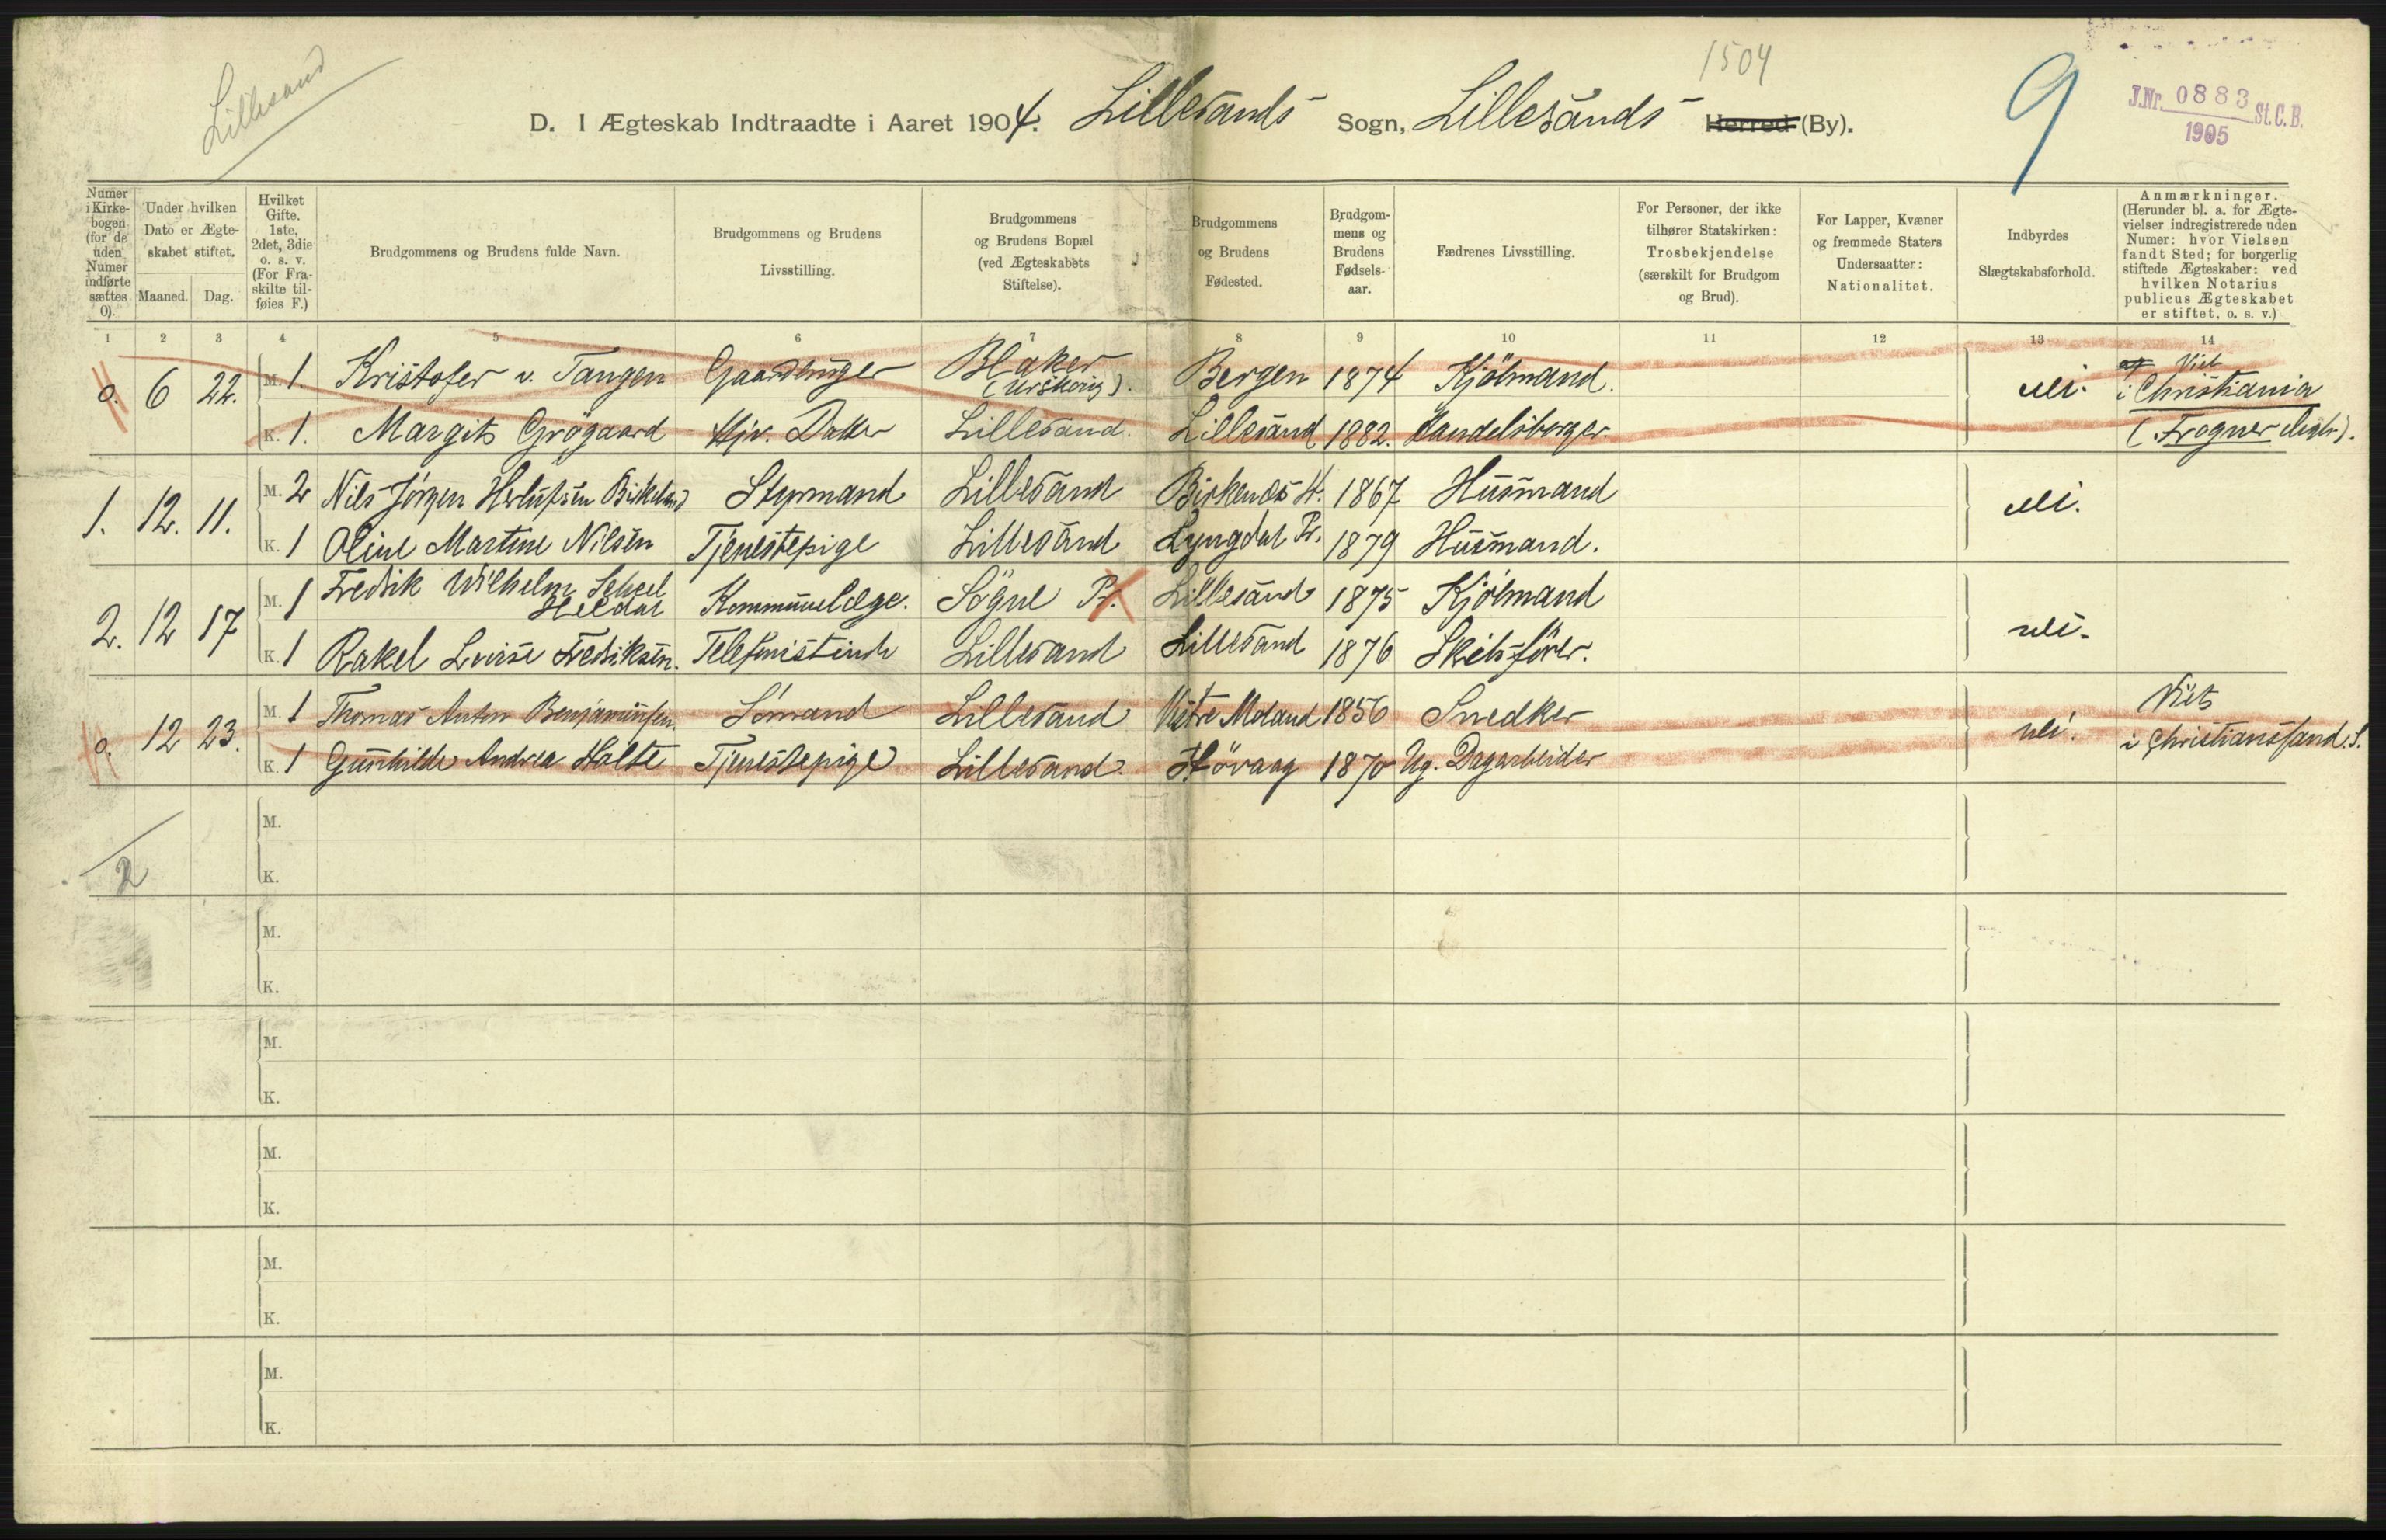 Lillesand
1504
9
J.Nr. 0883 St.C.B.
1905
D. I Ægteskab Indtraadte i Aaret 1904. Lillesands Sogn, Lillesands Herred (By).
Numer i Kirkebogen (for de uden Numer indførte sættes 0).
Under hvilken Dato er Ægteskabet stiftet.
Maaned. Dag.
Hvilket Gifte. 1ste, 2det, 3die o. s. v. (For Fraskilte tilføies F.)
Brudgommens og Brudens fulde Navn.
Brudgommens og Brudens Livsstilling.
Brudgommens og Brudens Bopæl (ved Ægteskabets Stiftelse).
Brudgommens og Brudens Fødested.
Brudgommens og Brudens Fødselsaar.
Fædrenes Livsstilling.
For Personer, der ikke tilhører Statskirken: Trosbekjendelse (særskilt for Brudgom og Brud).
For Lapper, Kvæner og fremmede Staters Undersaatter: Nationalitet.
Indbyrdes Slægtskabsforhold.
Anmærkninger. (Herunder bl. a. for Ægtevielser indregistrerede uden Numer: hvor Vielsen fandt Sted; for borgerlig stiftede Ægteskaber: ved hvilken Notarius publicus Ægteskabet er stiftet, o. s. v.)
1 2 3 4 5 6 7 8 9 10 11 12 13 14
0. 6 22. M. 1. Kristofer v. Tangen Blaker (Urskoug). Bergen 1874 Kjölmand. Viet i Christiania
K. 1. Margit Grögaard Hjv. Datter Lillesand. Lillesand 1882. Handelsborger. (Frogner
1. 12. 11. M. 2 Nils Jörgen Birkeland Styrmand Lillesand Birkenæs H. 1867 Husmand
K. 1 Oline Martine Nilsen Tjenestepige Lillesand Lyngdal Pr. 1879 Husmand.
2. 12 17 M. 1 Fredrik Wilhelm Kommunelæge. Sögne Pr. Lillesand 1875 Kjölmand
K. 1 Rakel Lovise Fredriksen. Telefonistinde Lillesand Lillesand 1876 Skibsförer.
0. 12 23. M. 1 Thomas Anton Benjaminsen. Sömand Lillesand Vestre Moland 1856 Snedker Viet
K. 1 Gunhilde Andrea Holte Tjenestepige Lillesand. Hövaag 1870 Ug. Dagarbeider i Christianssand. S.
2
M.
K.
M.
K.
M.
K.
M.
K.
M.
K.
M.
K.